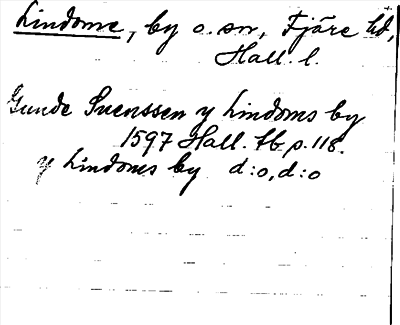 Lindome, by o. sn, Fjäre hd,
Hall. l.
Gunde Suenssen y Lindoms by
1597 Hall. tb p. 118.
y Lindoms by d:o, d:o